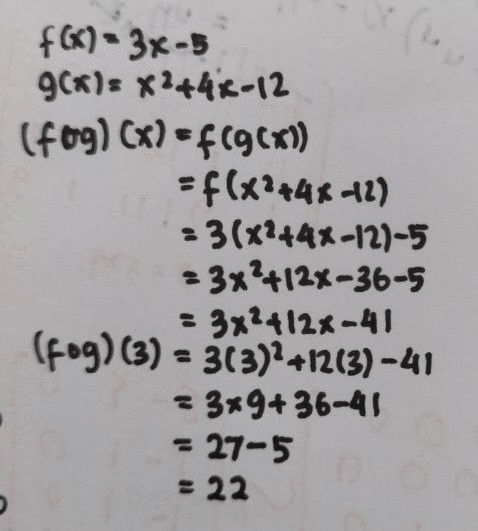 f(x) = 3x - 5
g(x) = x² + 4x - 12
(fog)(x) = f(g(x))
= f(x² + 4x - 12)
= 3(x² + 4x - 12) - 5
= 3x² + 12x - 36 - 5
= 3x² + 12x - 41
(fog)(3) = 3(3)² + 12(3) - 41
= 3 × 9 + 36 - 41
= 27 - 5
= 22